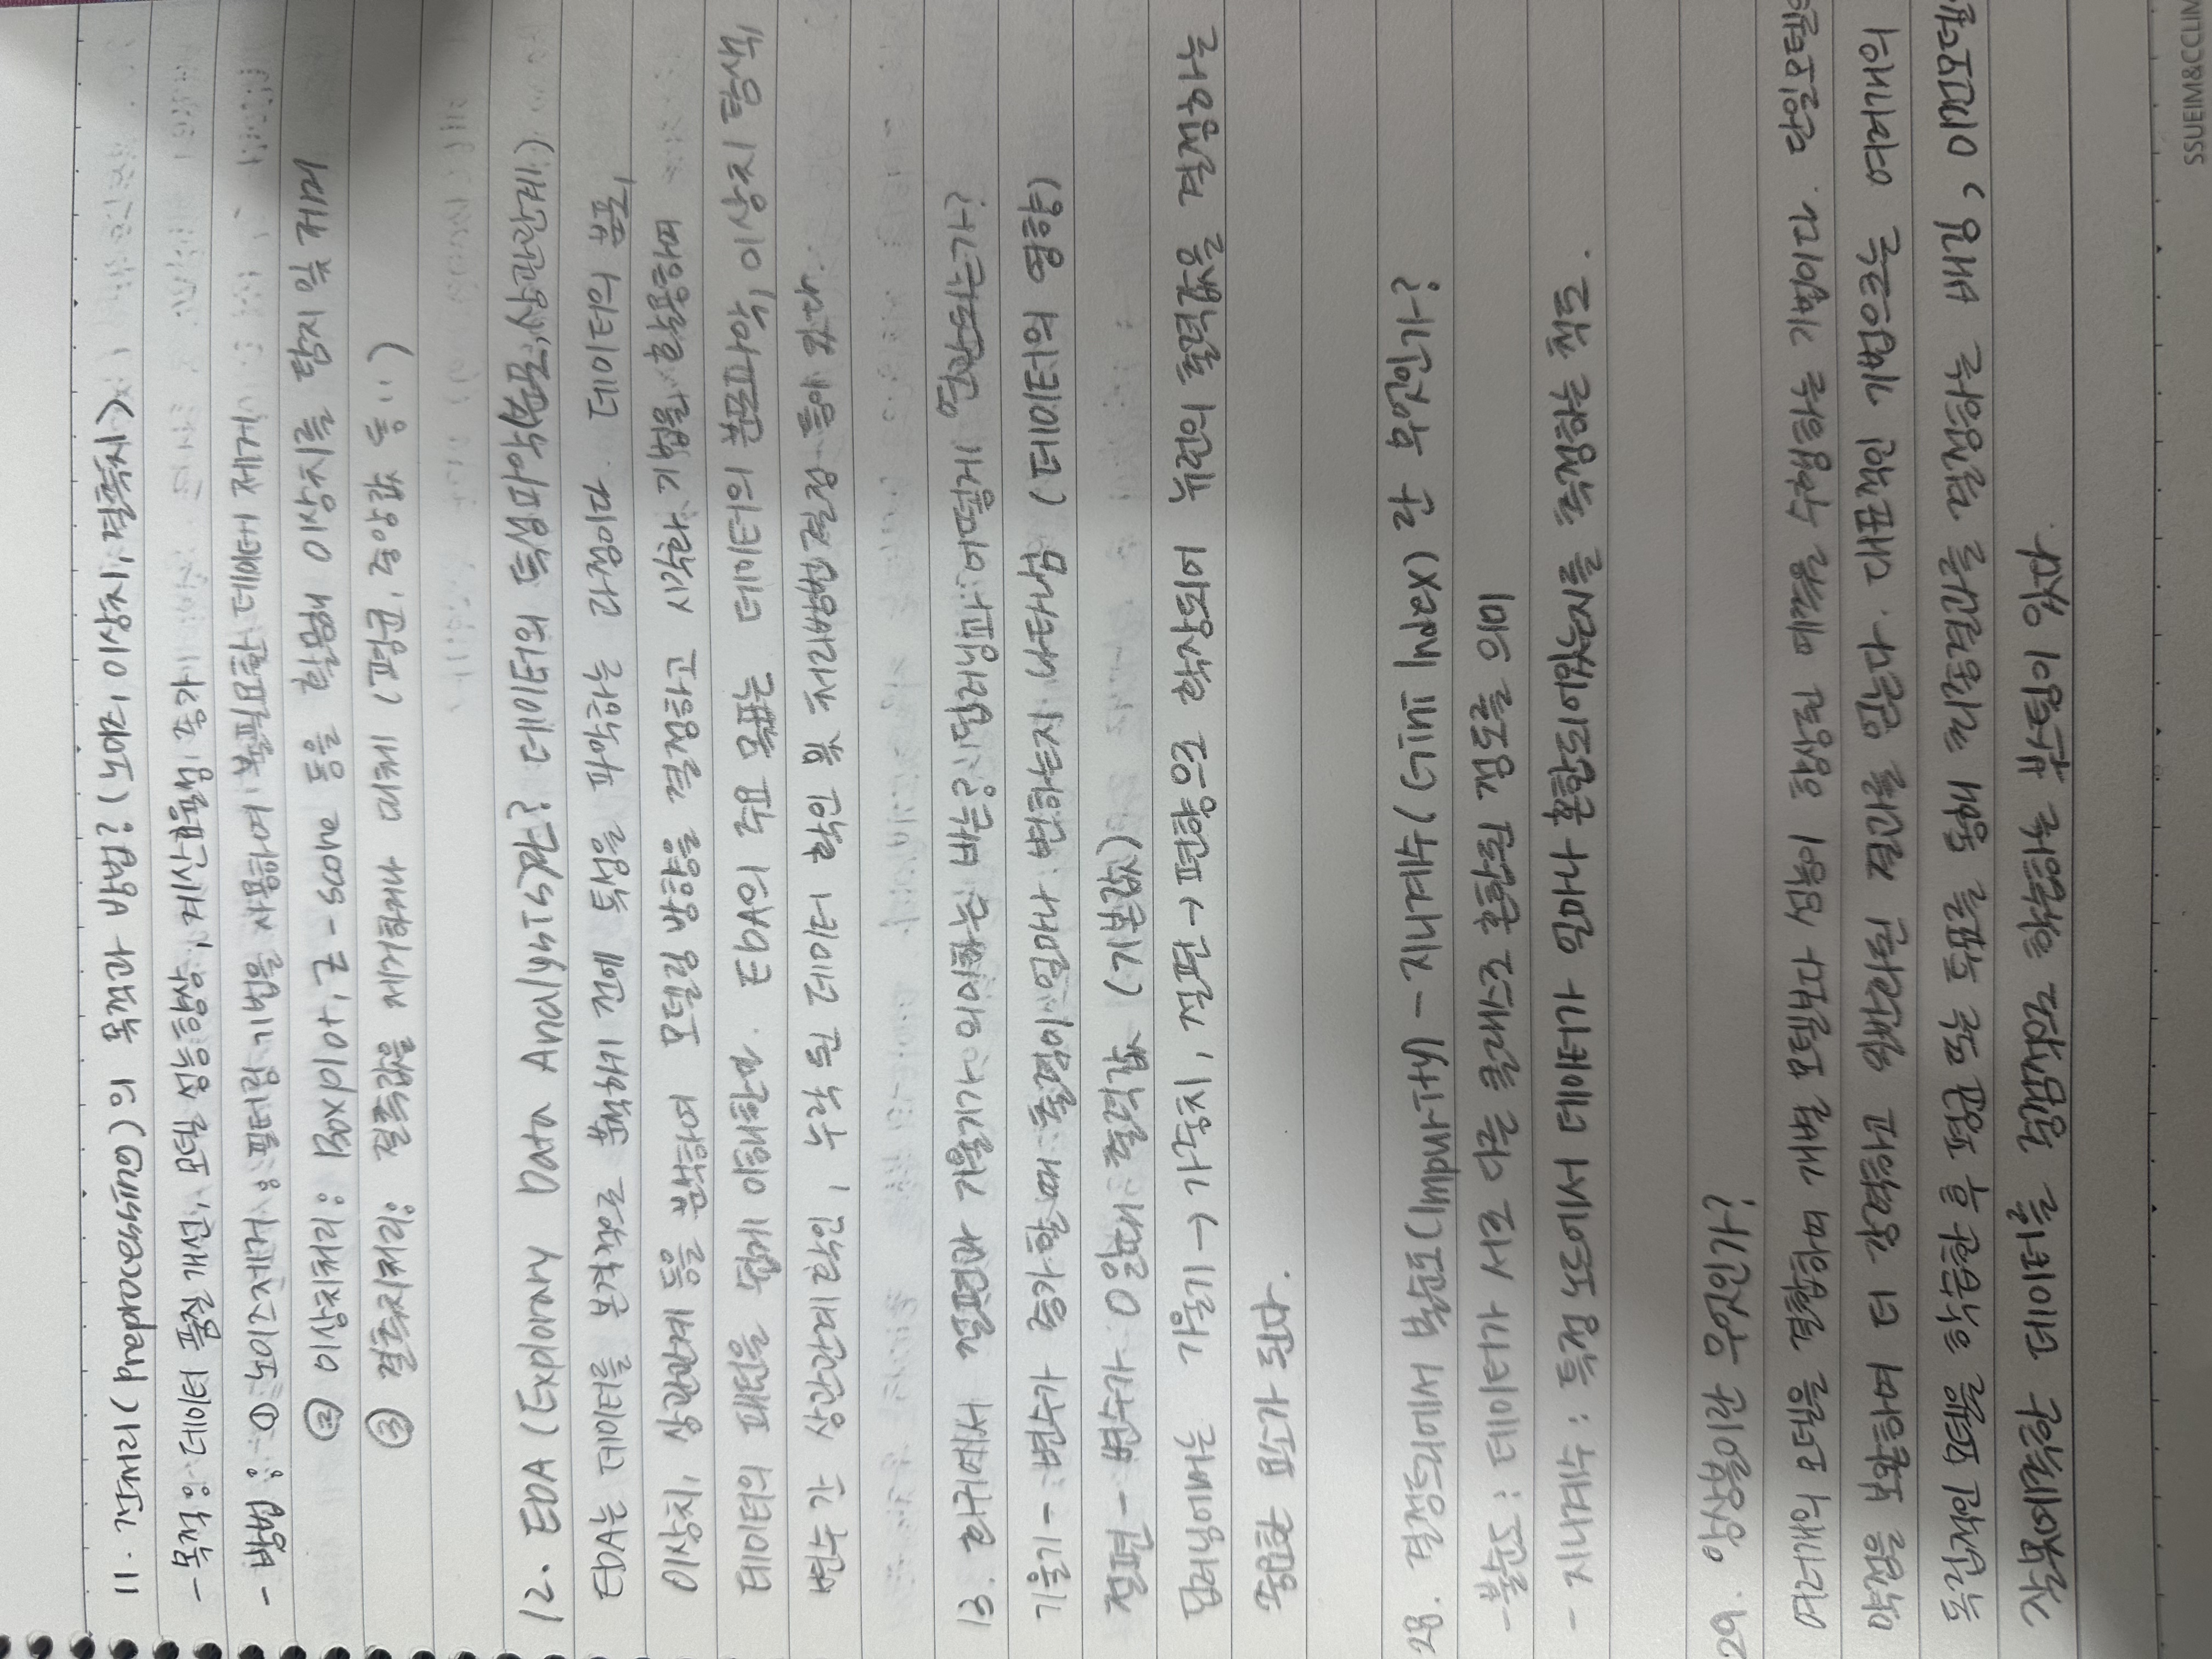 11. 전처리(Preprocessing)의 목적과 방법? (노이즈, 이상치, 결측치)
- 목적 : 데이터 품질 개선, 모델 성능향상, 계산효율성 증가
- 방법 : ① 노이즈제거 : 필터링 기법을 사용하여 불필요한 데이터 제거
② 이상치처리 : Boxplot, Z-score 등을 활용해 이상치를 탐지 및 제거
③ 결측치처리 : 결측값을 제거하거나 대체 (평균, 중앙값 등..)
12. EDA (Explorary Data Analysis)란? 데이터의 특성파악(분포, 상관관계)
EDA는 데이터를 본격적으로 분석하기 전에 특성을 파악하는 과정이다. 데이터의 분포,
이상치, 상관관계 등을 분석하여 모델링 방향을 결정하고 시각화 기법을 활용하며
데이터의 패턴을 쉽게 이해한다. EDA의 주요 목표는 데이터의 분포파악, 이상치 탐색,
변수 간 상관관계 확인, 누락 된 데이터 확인 및 처리방법결정 등이 있다.
13. 회귀에서 절편과 기울기가 의미하는 바는? 딥러닝과 어떻게 연관되는가?
기울기 - 변수가 증가할 때 출력이 얼마나 변하는지 나타냄 (데이터의 영향)
절편 - 변수가 0일때 출력값 (기본값)
딥러닝에서는 기울기 → 가중치, 절편 → 편향으로 확장되어 뉴런의 출력값을 결정하는
중요한 요소가 된다.
28. 결정트리에서 불순도(Impurity) - 지니계수(Gini Index) 란 무엇인가?
- 불순도 : 데이터가 서로 다른 클래스로 혼합된 정도를 의미
- 지니계수 : 특정 노드에서 데이터가 얼마나 혼합되어있는지를 측정하는 척도.
29. 앙상블이란 무엇인가?
여러개의 모델을 결합하여 개별 모델보다 성능이 향상된 예측을 수행하는 기법이다. 단일모델의
약점을 보완하여 더 강력하고 일반화된 결과를 얻는다. 대표적인 기법으로는 여러개의
독립적인 모델을 학습한 후 평균 또는 투표를 통해 최종결과를 결정하는 배깅, 이전모델
잘못예측한 데이터를 중점적으로 학습하는 부스팅이 있다.
SSUEIM&CCLIM